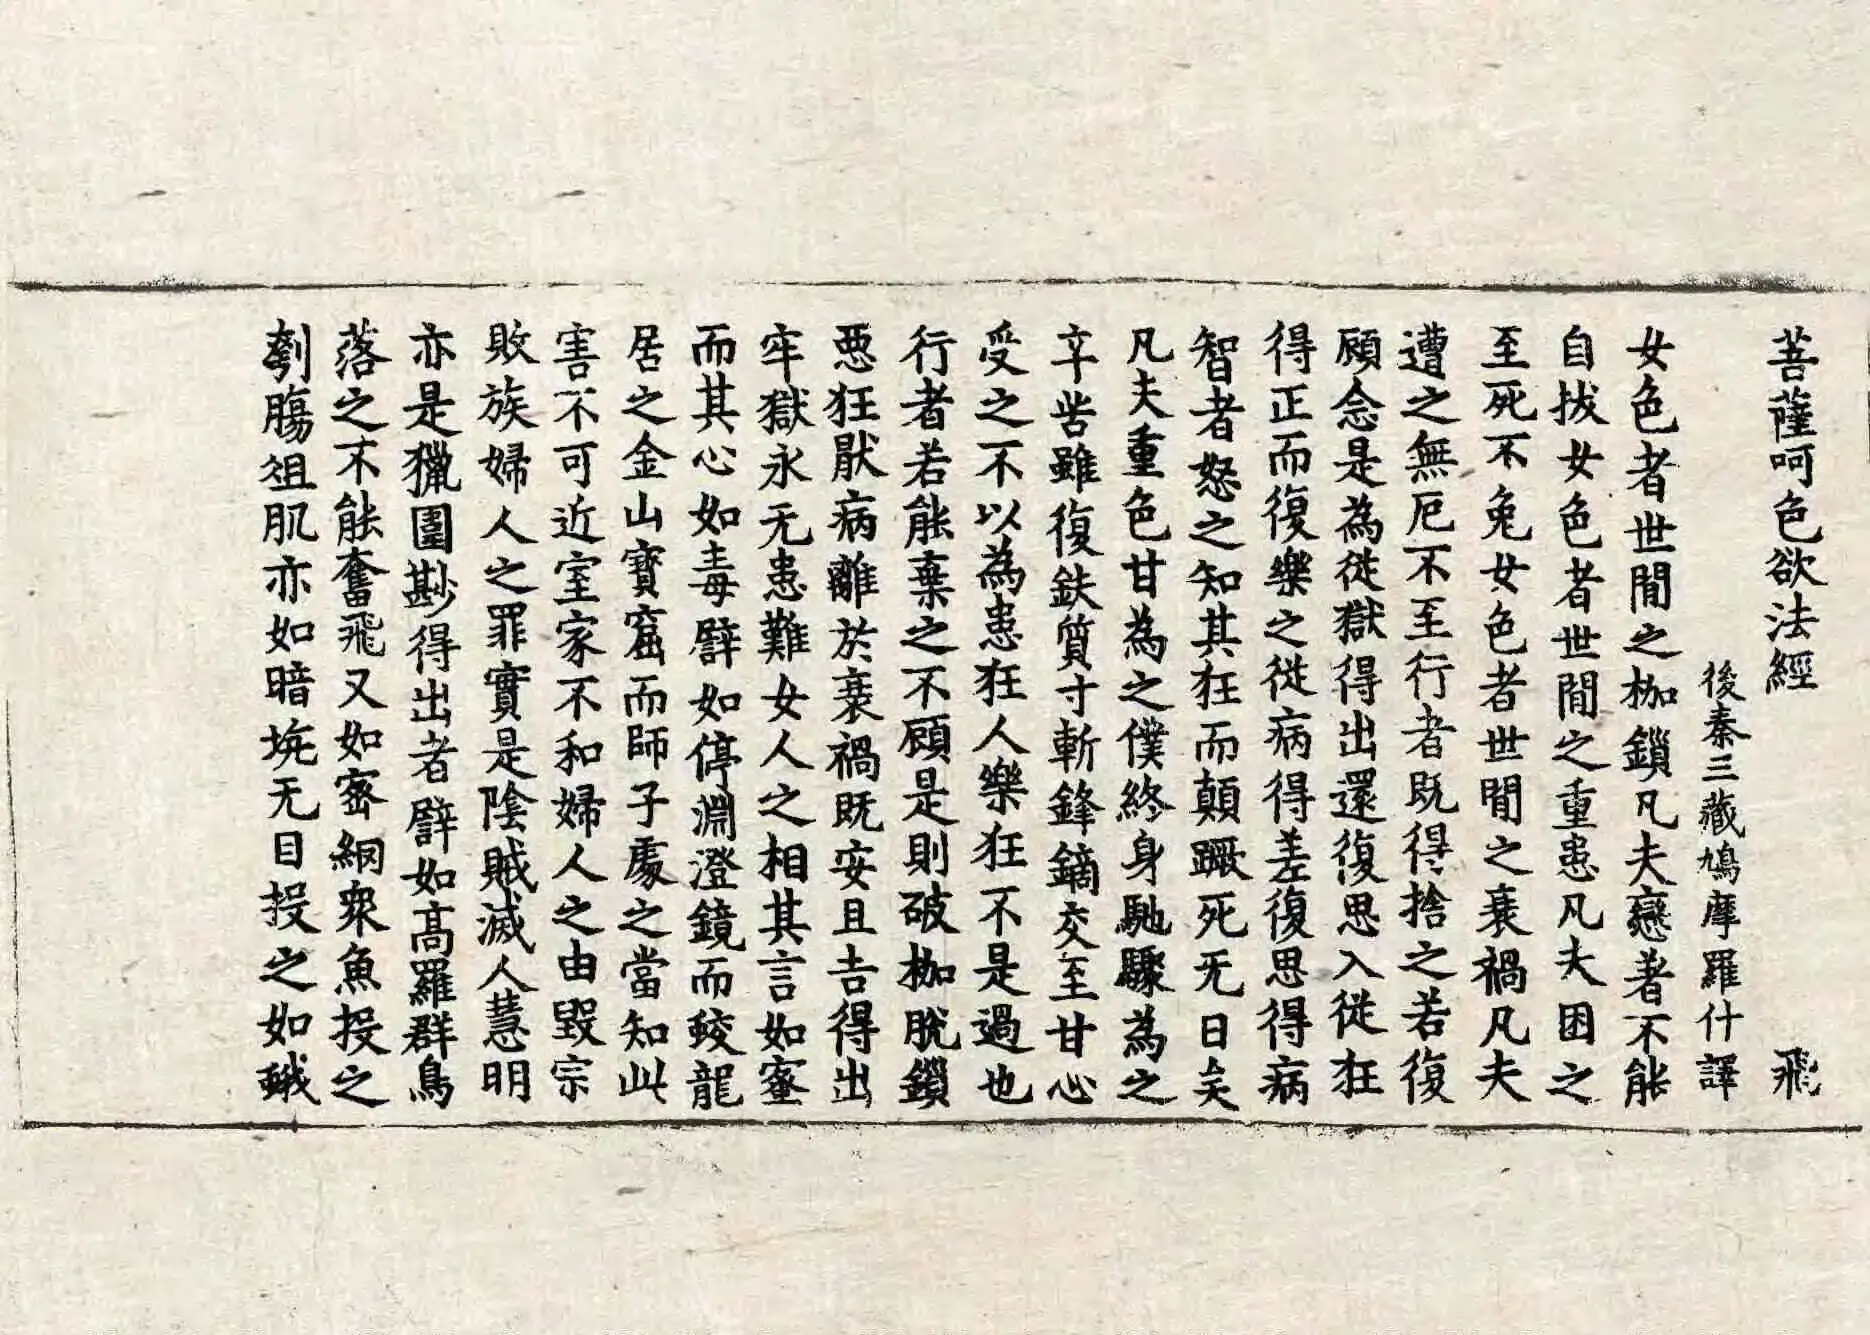 菩薩呵色欲法經 飛
後秦三藏鳩摩羅什譯
女色者世閒之枷鎖凡夫戀著不能
自拔女色者世閒之重患凡夫困之
至死不免女色者世閒之衰禍凡夫
遭之無厄不至行者既得捨之若復
顧念是為從獄得出還復思入從狂
得正而復樂之從病得差復思得病
智者怒之知其狂而顛蹶死无日矣
凡夫重色甘為之僕終身馳驟為之
辛苦雖復鈇質寸斬鋒鏑交至甘心
受之不以為患狂人樂狂不是過也
行者若能棄之不顧是則破枷脫鎖
惡狂厭病離於衰禍既安且吉得出
牢獄永无患難女人之相其言如蜜
而其心如毒譬如停淵澄鏡而蛟龍
居之金山寶窟而師子處之當知此
害不可近室家不和婦人之由毀宗
敗族婦人之罪實是陰賊滅人慧明
亦是獵圍尠得出者譬如高羅群鳥
落之不能奮飛又如密網眾魚投之
刳腸俎肌亦如暗坑无目投之如蛾